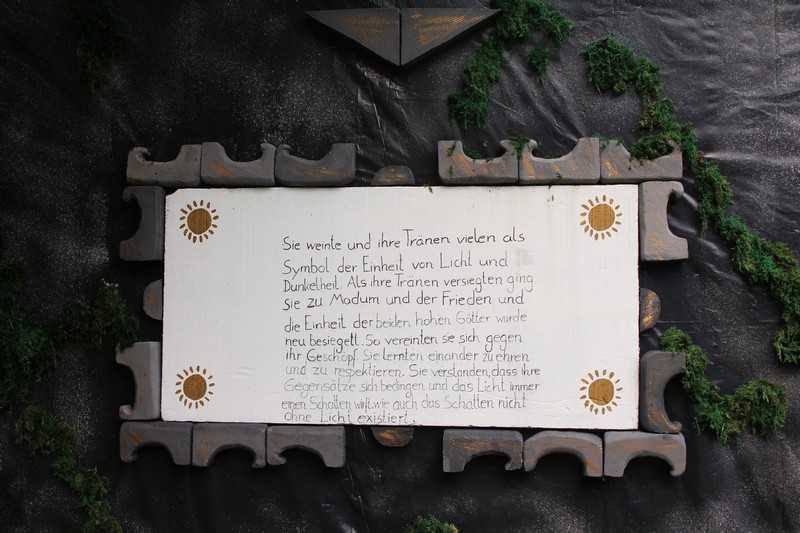 Sie weinte und ihre Tränen vielen als
Symbol der Einheit von Licht und
Dunkelheit. Als ihre Tränen versiegten ging
Sie zu Madum und der Frieden und
die Einheit der beiden hohen Götter wurde
neu besiegelt. So vereinten sie sich gegen
ihr Geschöpf. Sie lernten einander zu ehren
und zu respektieren. Sie verstanden, dass ihre
Gegensätze sich bedingen und das Licht immer
einen Schatten wirft, wie auch das Schatten nicht
ohne Licht existiert.